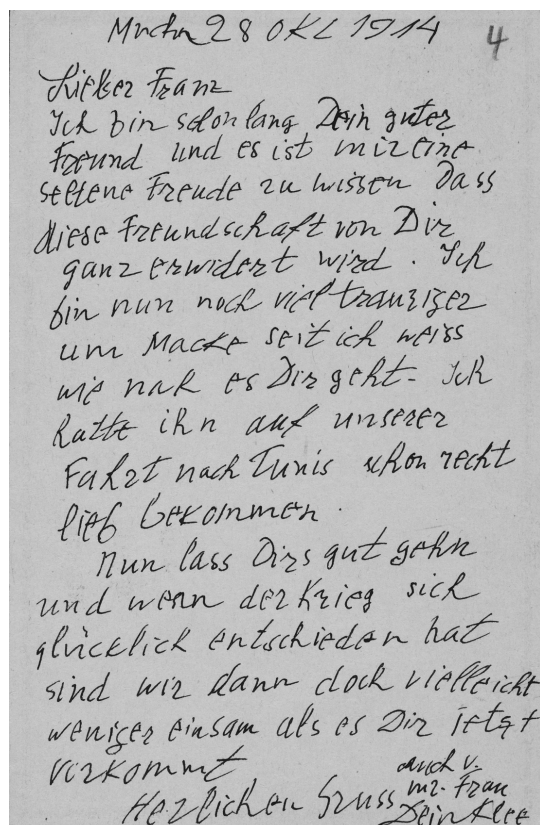 Mnchn 28 Okt 1914
4
Lieber Franz
Ich bin schon lang Dein guter
Freund und es ist mir eine
seltene Freude zu wissen Dass
diese Freundschaft von Dir
ganz erwidert wird. Ich
bin nun noch viel trauriger
um Macke seit ich weiss
wie nah es Dir geht. Ich
hatte ihn auf unserer
Fahrt nach Tunis schon recht
lieb bekommen.
Nun lass Dirs gut gehn
und wenn der Krieg sich
glücklich entschieden hat
sind wir dann doch vielleicht
weniger einsam als es Dir jetzt
vorkommt
Herzlichen Gruss auch v.
mr. Frau
Dein Klee